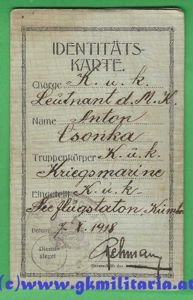 IDENTITÄTS-
KARTE.
Charge K. u. k.
Leutnant d. M. K.
Name Anton
Csonka
Truppenkörper K. u. k.
Kriegsmarine
Eingeteilt K. u. k.
Seeflugstation Kumbor
Datum 7. X. 1918
Dienst-
siegel
(c)www.gkmilitaria.com